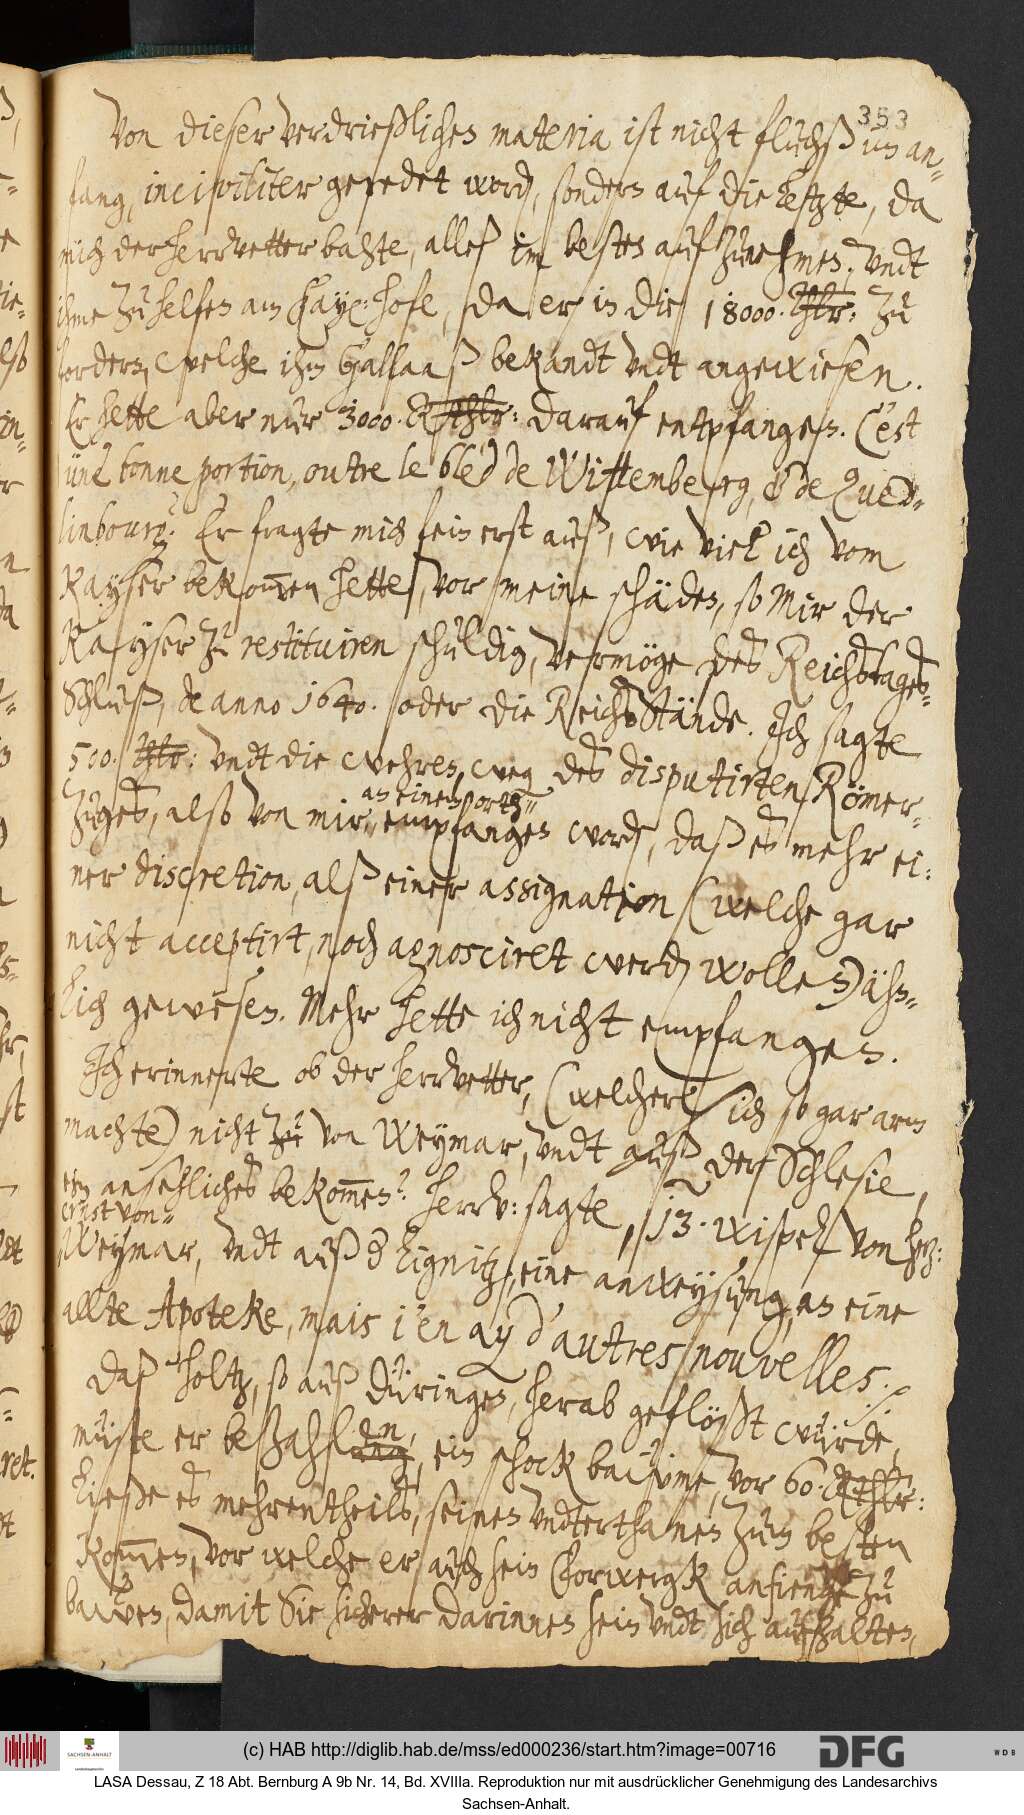 353
Von dieser verdrießlichen materia ist nicht flugß im an-
fang, inciviliter geredet word, sondern auf die letzte, da
mich der herrvetter bahte, alles im besten aufzunehmen. undt
ihme zu helfen am Kayß: hofe, da er in die 18000. Thlr: zu
fordern, welche ihm Gallaaß bekandt undt angewiesen.
Er hette aber nur 3000. Rthlr: darauf entpfangen. C'est
üne bonne portion, outre le bled de Wittemberg, & de Qued-
limbourg. Er fragte mich fein erst auß, wie viel ich vom
Kayser bekommen hette, vor meine schäden, so mir der
Kayser zu restituiren schuldig, vermöge des Reichstages-
Schluß, de anno 1640. oder die ReichsStände. Ich sagte
500. Thlr: undt die wehren, weg des disputirten Römer-
zuges, also von mir, empfangen word, daß es mehr ei-
an einem orth
ner discretion, alß einer assignation (welche gar
nicht acceptirt, noch agnosciret werd wollen) ähn-
lich gewesen. Mehr hette ich nicht empfangen.
Ich erinnerte ob der herrvetter, (welcher sich so gar arm
machte) nicht zu von Weymar, undt auß der Schlesie,
ein ansehliches bekommen? herrv: sagte, 13. wispel von herz:
ernst von
Weymar, undt auß d Lignitz, eine anweysung, an eine
allte Apoteke, mais j'en ay d'autres nouvelles.
Daß holtz, so auß Düringen, herab geflößt würde,
müste er bezahlen, ein schock baüme, vor 60. Rthlr:
ließe es mehrentheils, seinen undterthanen zum besten
kommen, vor welche er auch sein Vorwergk anfienge zu
bawen, damit Sie sicherer darinnen sein undt sich aufhalten,
(c) HAB http://diglib.hab.de/mss/ed000236/start.htm?image=00716
SACHSEN-ANHALT
DFG
WDB
LASA Dessau, Z 18 Abt. Bernburg A 9b Nr. 14, Bd. XVIIIa. Reproduktion nur mit ausdrücklicher Genehmigung des Landesarchivs
Sachsen-Anhalt.